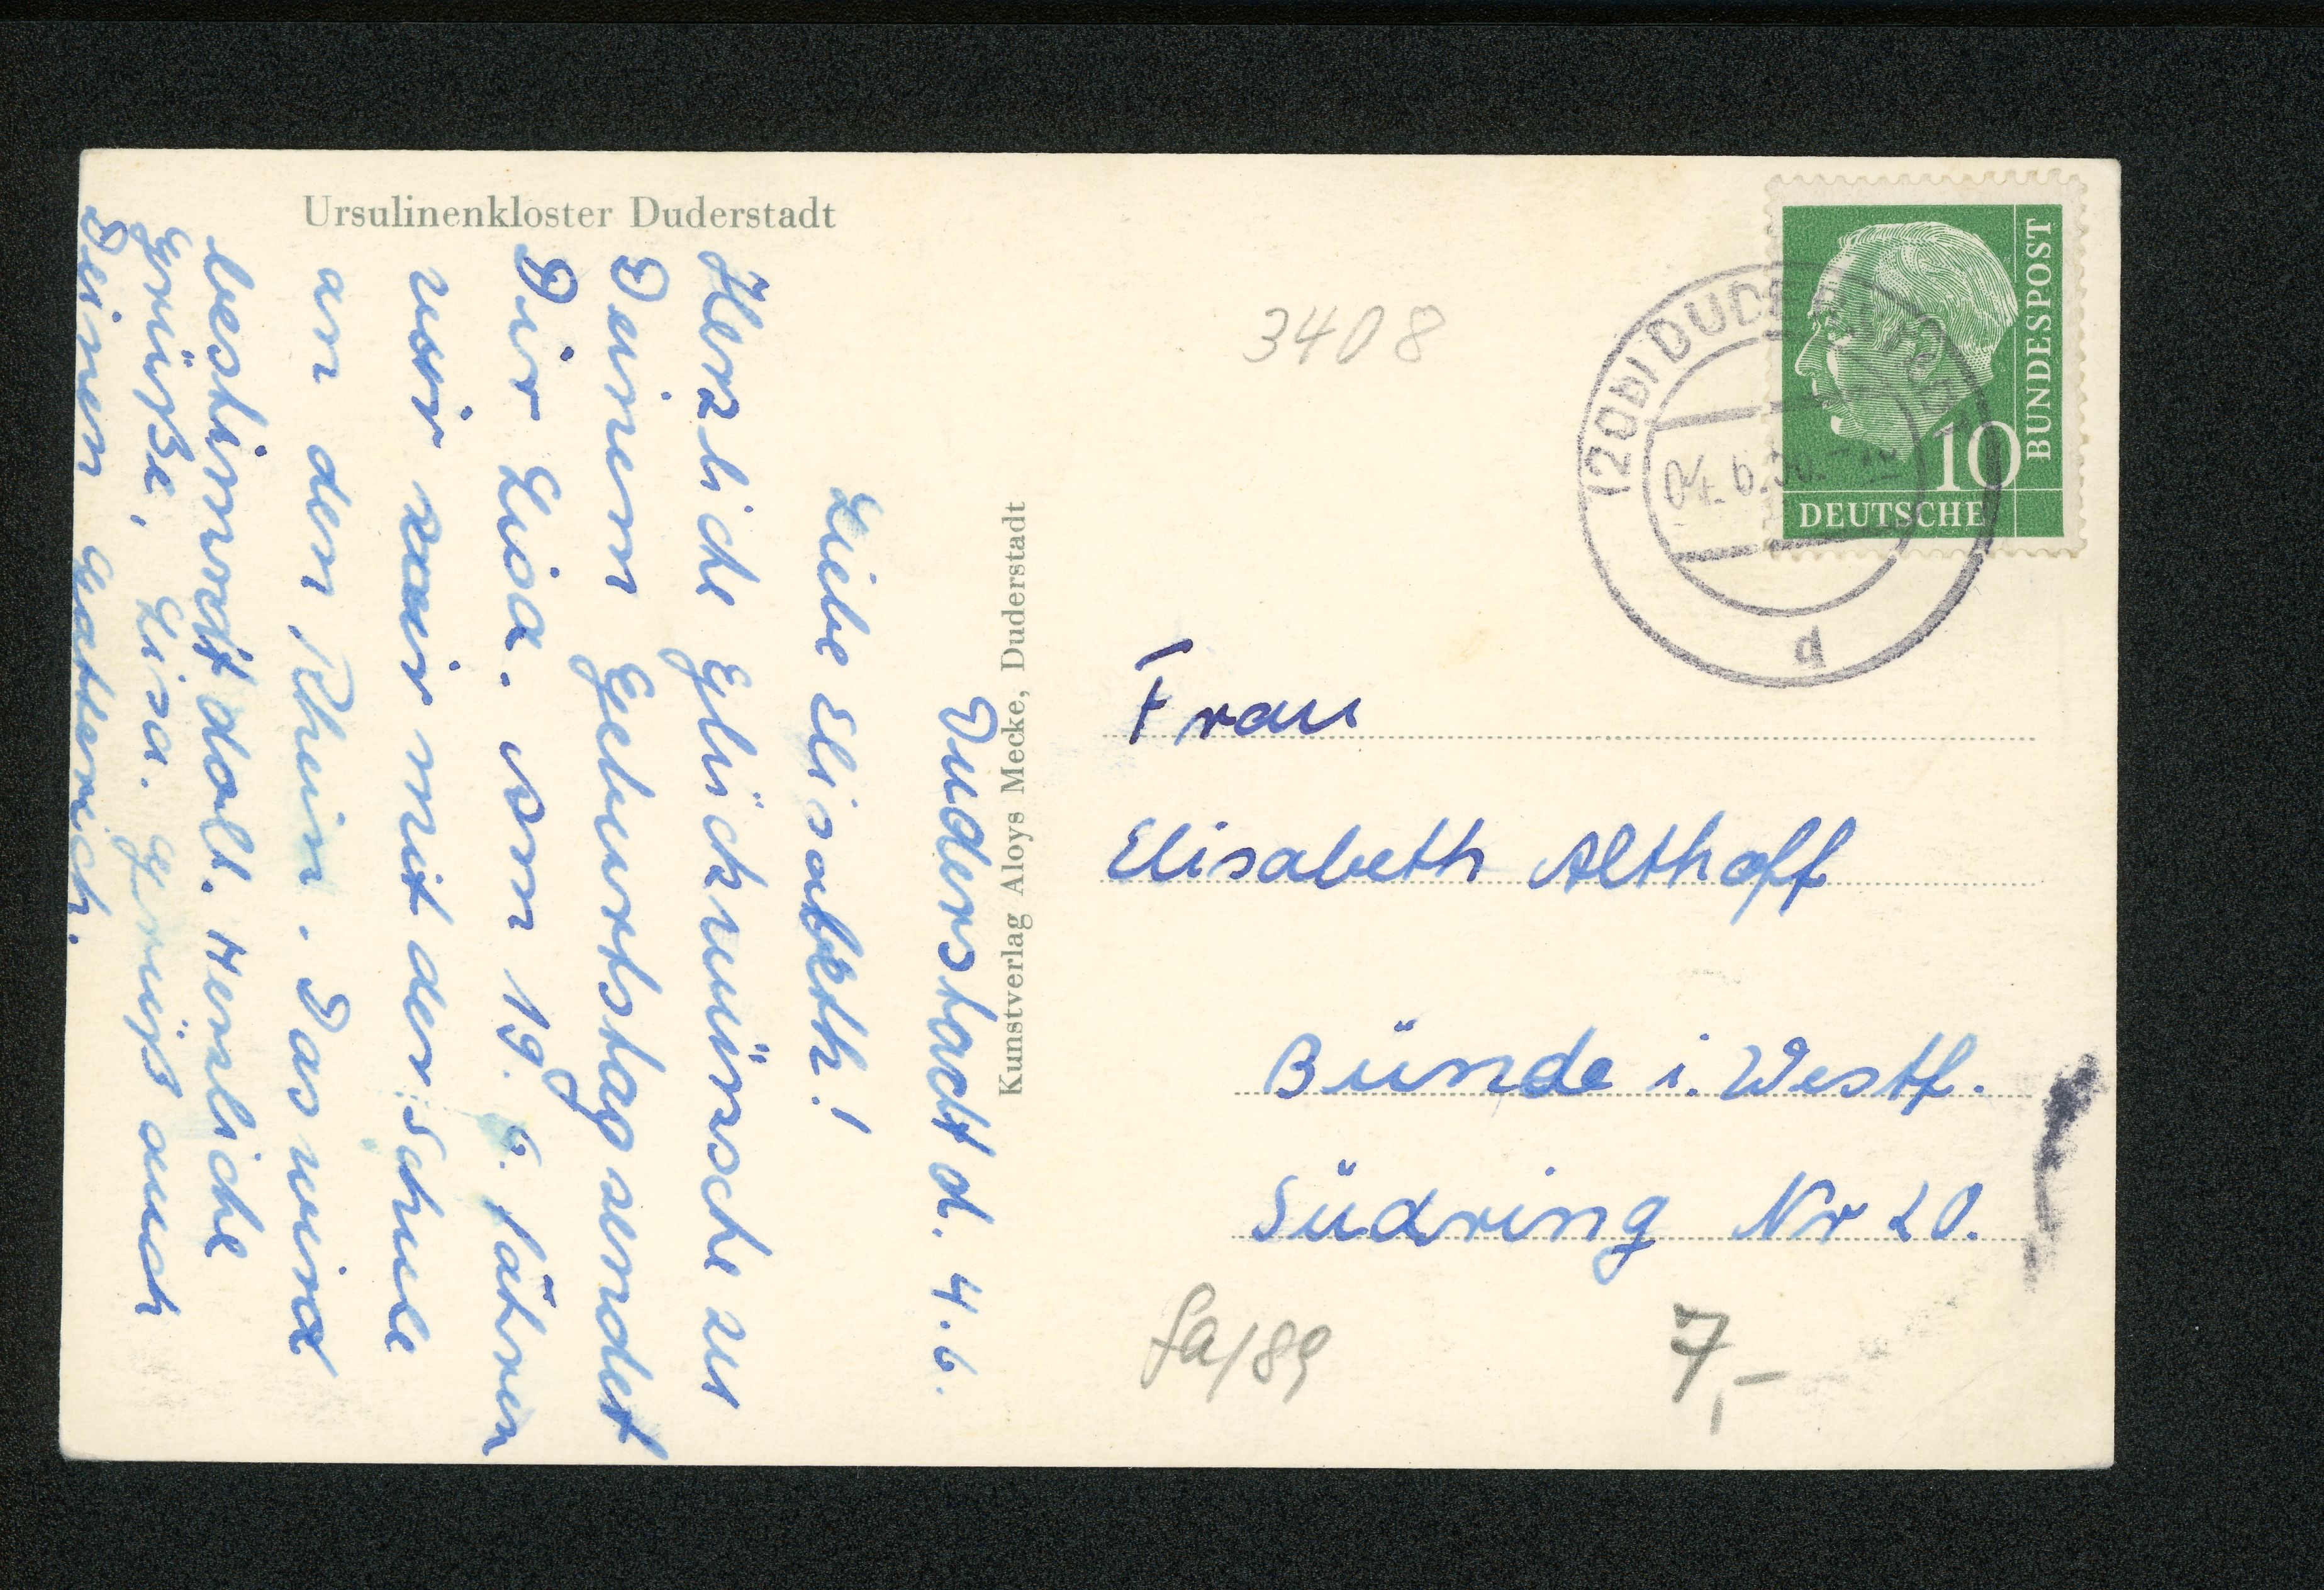 Ursulinenkloster Duderstadt
Duderstadt d. 4. 6.
Liebe Elisabeth!
Herzliche Glückwünsche zu
Deinem Geburtstag sendet
Dir Lisa. Am 19. 6. fahren
wir mit der Schule
an den Rhein. Das wird
bestimmt doll. Herzliche
Grüße, Lisa. Grüß auch
Deinen Gatterich.
Kunstverlag Aloys Mecke, Duderstadt
3408
DEUTSCHE
BUNDESPOST
10
(20b) DUDERSTADT
d
Frau
Elisabeth Althoff
Bünde i. Westf.
Südring Nr 20.
7,-